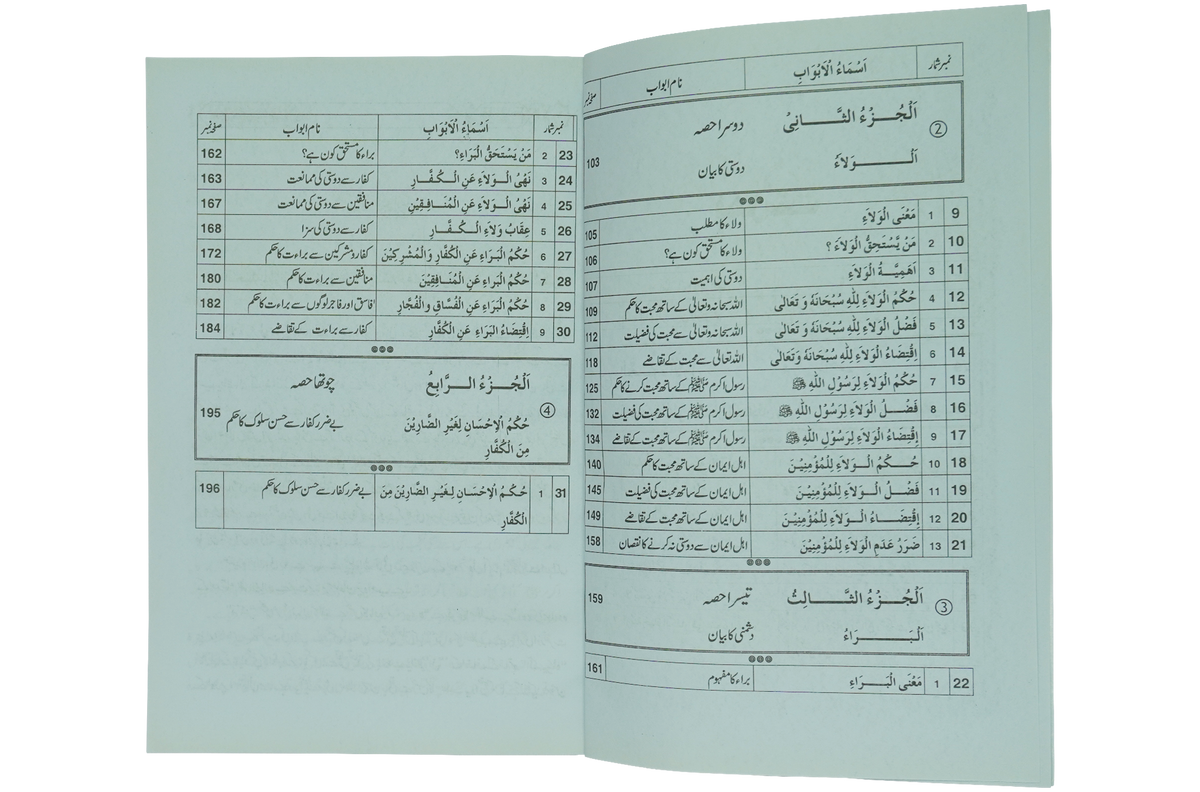 نمبر شمار اَسْمَاءُ الْاَبْوَابِ نام ابواب صفحہ نمبر
② اَلْجُزْءُ الثَّانِیْ دوسرا حصہ
اَلْوَلَاءُ دوستی کا بیان 103
9 1 مَعْنَی الْوَلَاءِ ولاء کا مطلب 105
10 2 مَنْ یَّسْتَحِقُّ الْوَلَاءَ ؟ ولاء کا مستحق کون ہے؟ 106
11 3 اَهَمِیَّةُ الْوَلَاءِ دوستی کی اہمیت 107
12 4 حُکْمُ الْوَلَاءِ لِلّٰهِ سُبْحَانَهُ وَ تَعَالٰی اللہ سبحانہ وتعالیٰ کے ساتھ محبت کا حکم 109
13 5 فَضْلُ الْوَلَاءِ لِلّٰهِ سُبْحَانَهُ وَ تَعَالٰی اللہ سبحانہ وتعالیٰ سے محبت کی فضیلت 112
14 6 اِقْتِضَاءُ الْوَلَاءِ لِلّٰهِ سُبْحَانَهُ وَتَعَالٰی اللہ تعالیٰ سے محبت کے تقاضے 118
15 7 حُکْمُ الْوَلَاءِ لِرَسُوْلِ اللّٰهِ ﷺ رسول اکرم ﷺ کے ساتھ محبت کرنے کا حکم 125
16 8 فَضْلُ الْوَلَاءِ لِرَسُوْلِ اللّٰهِ ﷺ رسول اکرم ﷺ کے ساتھ محبت کی فضیلت 132
17 9 اِقْتِضَاءُ الْوَلَاءِ لِرَسُوْلِ اللّٰهِ ﷺ رسول اکرم ﷺ کے ساتھ محبت کے تقاضے 134
18 10 حُکْمُ الْوَلَاءِ لِلْمُؤْمِنِیْنَ اہل ایمان کے ساتھ محبت کا حکم 140
19 11 فَضْلُ الْوَلَاءِ لِلْمُؤْمِنِیْنَ اہل ایمان کے ساتھ محبت کی فضیلت 145
20 12 اِقْتِضَاءُ الْوَلَاءِ لِلْمُؤْمِنِیْنَ اہل ایمان کے ساتھ محبت کے تقاضے 149
21 13 ضَرَرُ عَدَمِ الْوَلَاءِ لِلْمُؤْمِنِیْنَ اہل ایمان سے دوستی نہ کرنے کا نقصان 158
③ اَلْجُزْءُ الثَّالِثُ تیسرا حصہ 159
اَلْبَرَاءُ دشمنی کا بیان
22 1 مَعْنَی الْبَرَاءِ براء کا مفہوم 161
نمبر شمار اَسْمَاءُ الْاَبْوَابِ نام ابواب صفحہ نمبر
23 2 مَنْ یَسْتَحِقُّ الْبَرَاءِ؟ براء کا مستحق کون ہے؟ 162
24 3 نَهْیُ الْوَلَاءِ عَنِ الْکُفَّارِ کفار سے دوستی کی ممانعت 163
25 4 نَهْیُ الْوَلَاءِ عَنِ الْمُنَافِقِیْنَ منافقین سے دوستی کی ممانعت 167
26 5 عِقَابُ وَلَاءِ الْکُفَّارِ کفار سے دوستی کی سزا 168
27 6 حُکْمُ الْبَرَاءِ عَنِ الْکُفَّارِ وَالْمُشْرِکِیْنَ کفار ومشرکین سے براءت کا حکم 172
28 7 حُکْمُ الْبَرَاءِ عَنِ الْمُنَافِقِیْنَ منافقین سے براءت کا حکم 180
29 8 حُکْمُ الْبَرَاءِ عَنِ الْفُسَّاقِ والْفُجَّارِ فاسق اور فاجر لوگوں سے براءت کا حکم 182
30 9 اِقْتِضَاءُ الْبَرَاءِ عَنِ الْکُفَّارِ کفار سے براءت کے تقاضے 184
④ اَلْجُزْءُ الرَّابِعُ چوتھا حصہ
حُکْمُ الْاِحْسَانِ لِغَیْرِ الضَّارِیْنَ بے ضرر کفار سے حسن سلوک کا حکم 195
مِنَ الْکُفَّارِ
31 1 حُکْمُ الْاِحْسَانِ لِغَیْرِ الضَّارِیْنَ مِنَ بے ضرر کفار سے حسن سلوک کا حکم 196
الْکُفَّارِ